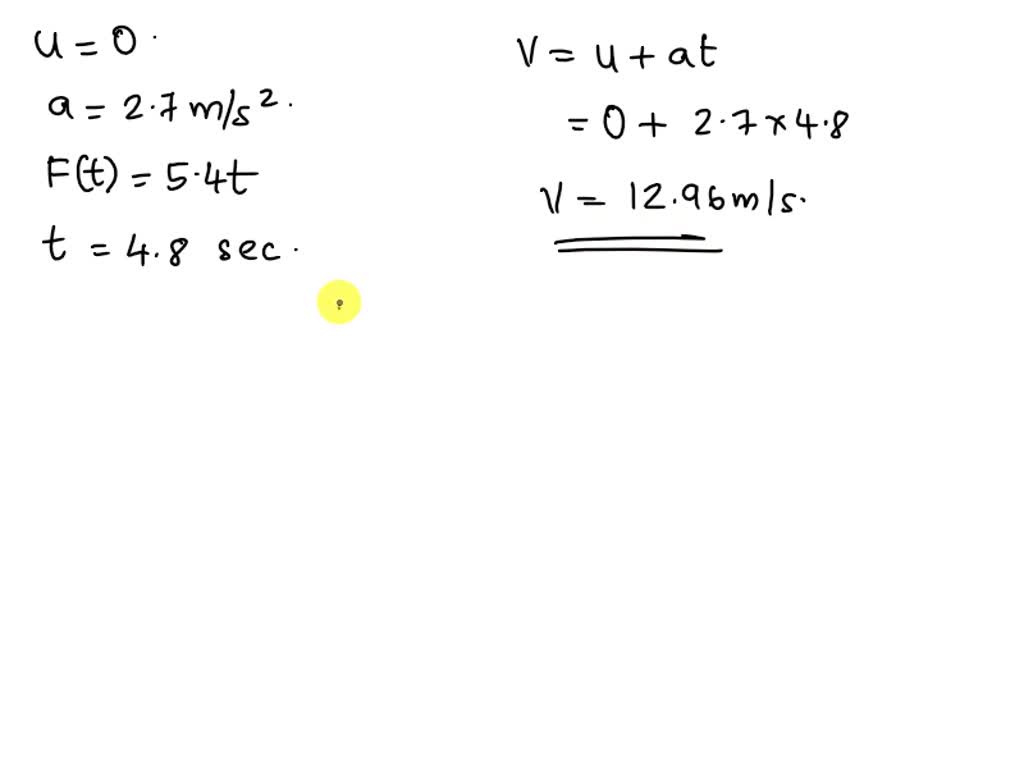 u = 0.
a = 2.7 m/s².
F(t) = 5.4t
t = 4.8 sec.
V = u + at
= 0 + 2.7 × 4.8
V = 12.96 m/s.